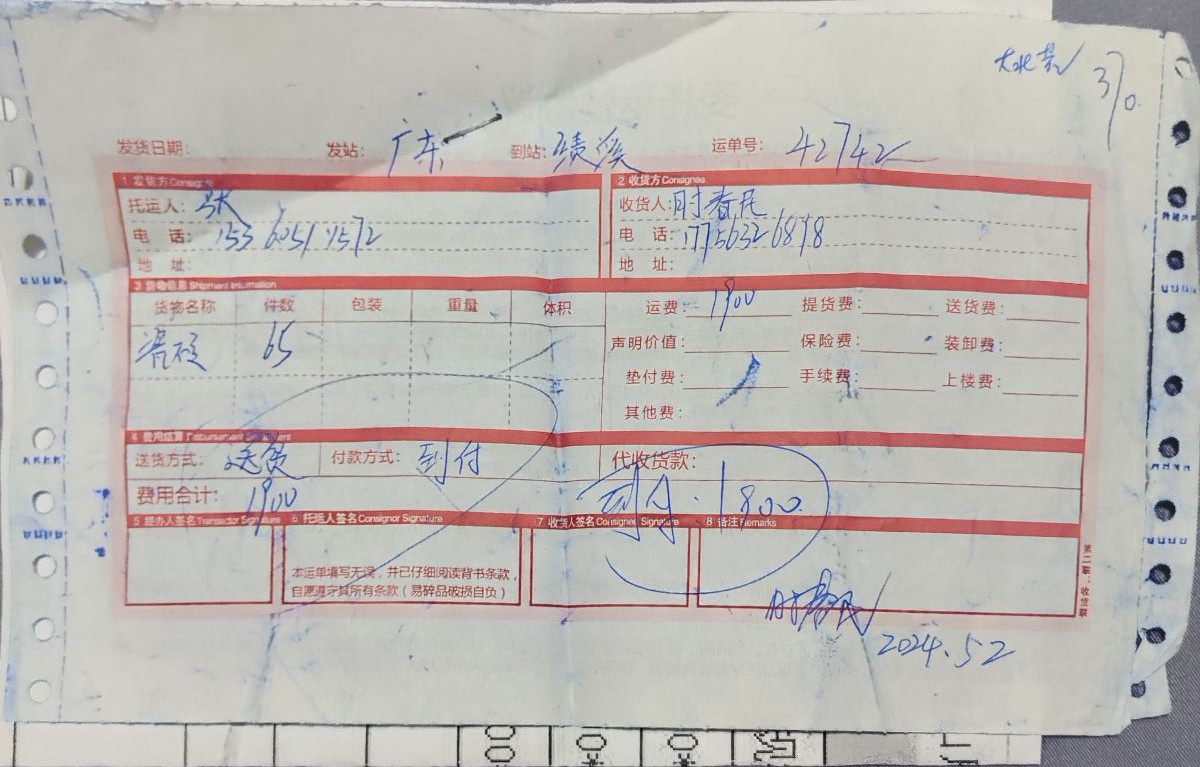 370
发货日期: 发站: 广东 到站: 绩溪 运单号: 42742
1 发货方 Consignor 2 收货方 Consignee
托运人: 收货人: 时春民
电 话: 电 话: 17756326898
地 址: 地 址:
3 货物信息 Shipment Information
货物名称 件数 包装 重量 体积 运费: 1900 提货费: 送货费:
瓷砖 65 声明价值: 保险费: 装卸费:
垫付费: 手续费: 上楼费:
其他费:
4 费用结算 Disbursement Settlement
送货方式: 送货 付款方式: 到付 代收货款:
费用合计: 1900 到付.1800
5 经办人签名 Transactor Signature 6 托运人签名 Consignor Signature 7 收货人签名 Consignee Signature 8 备注 Remarks
本运单填写无误,并已仔细阅读背书条款,
自愿遵守其所有条款(易碎品破损自负)
第二联:收货联
时春民
2024.52